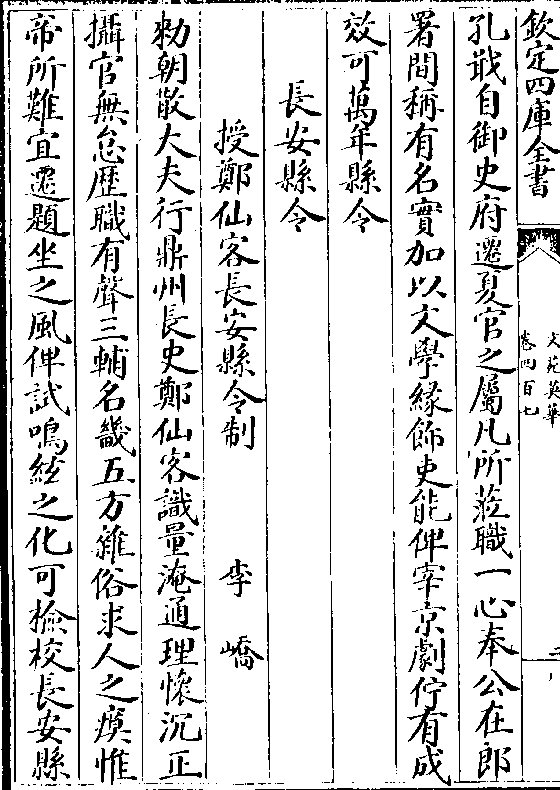 欽定四庫全書
文苑英華
卷四百七
孔戢自御史府遷夏官之屬凡所蒞職一心奉公在郎
署間稱有名實加以文學緣飾吏能俾宰京劇佇有成
效可萬年縣令
長安縣令
授鄭仙客長安縣令制　李嶠
勑朝散大夫行鼎州長史鄭仙客識量淹通理懷沉正
攝官無怠歴職有聲三輔名畿五方雜俗求人之瘼惟
帝所難宜遷題坐之風俾試鳴絃之化可檢校長安縣